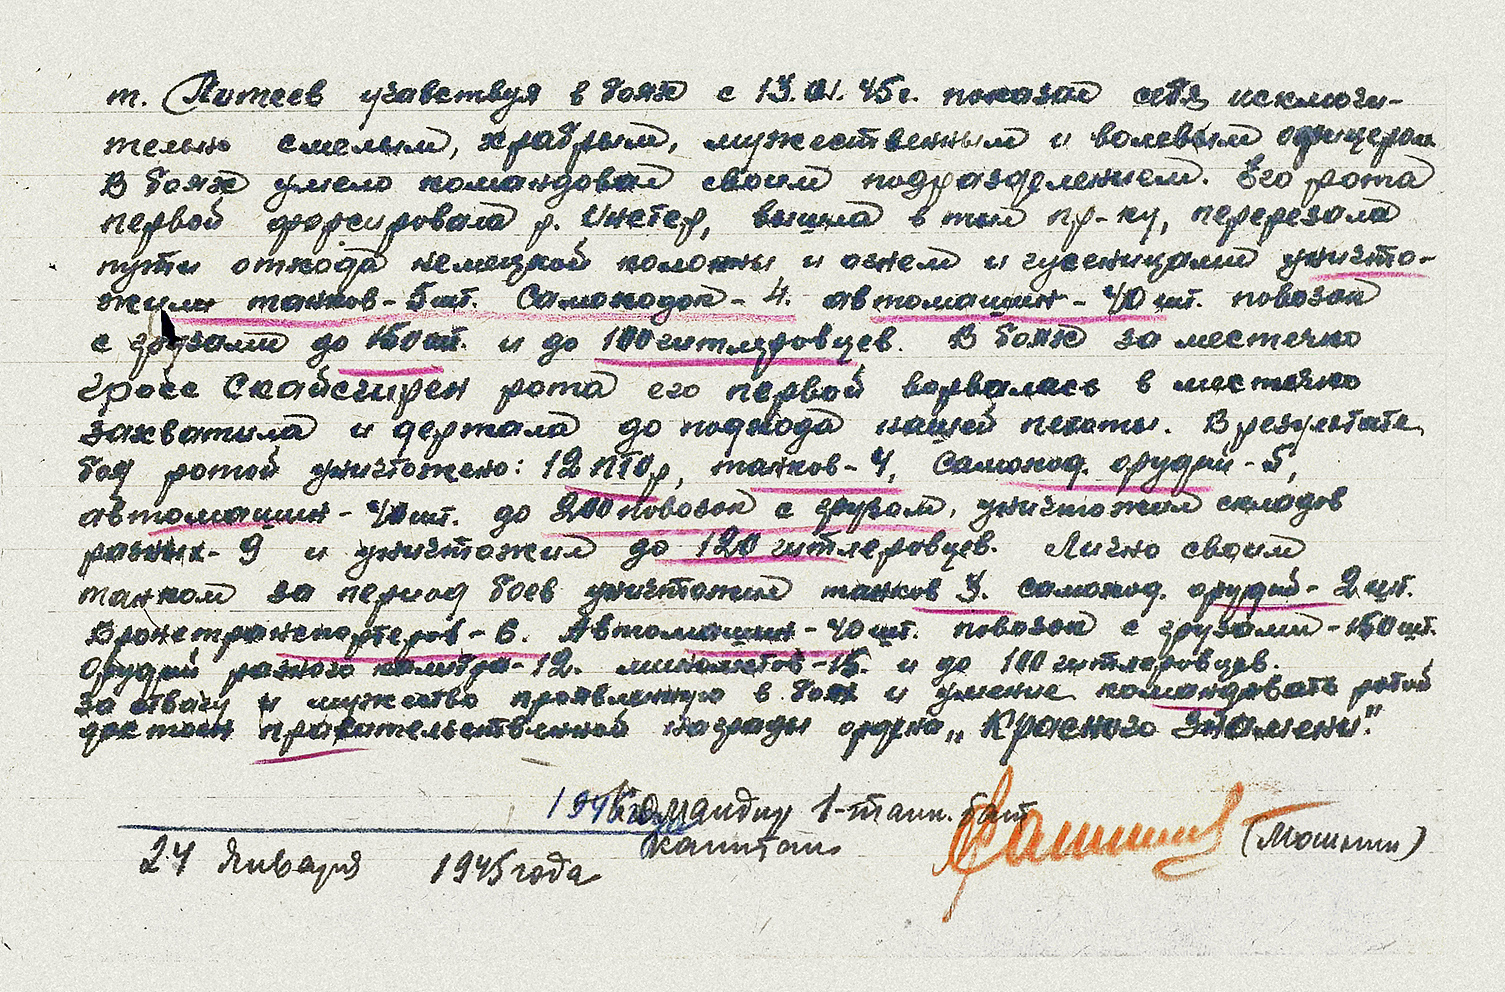 т. Потеев участвуя в боях с 13.01.45г. показал себя исключи-
тельно смелым, храбрым, мужественным и волевым офицером
В боях умело командовал своим подразделением. Его рота
первой форсировала р. Инстер, вышла в тыл пр-ку, перерезала
пути отхода немецкой колонны и огнем и гусеницами уничто-
жили танков - 5 шт. Самоходок - 4. автомашин - 40 шт. повозок
с грузами до 150 шт. и до 100 гитлеровцев. В боях за местечко
Гросс Скайсгирен рота его первой ворвалась в местечко
захватила и держала до подхода нашей пехоты. В результате
боя ротой уничтожено: 12 ПТОр, танков - 4, самоход. орудий - 5,
автомашин - 40 шт. до 200 повозок с грузом, уничтожил складов
разных - 9 и уничтожил до 120 гитлеровцев. Лично своим
танком за период боев уничтожил танков 3. самоход. орудий - 2 шт.
Бронетранспортеров - 6. Автомашин - 40 шт. повозок с грузами - 150 шт.
Орудий разного калибра - 12. минометов - 15. и до 100 гитлеровцев.
За отвагу и мужество проявленную в боях и умение командовать ротой
достоин правительственной награды ордена „Красного Знамени".
Командир 1-танк. бат
капитан (Мошнин)
24 Января 1945 года